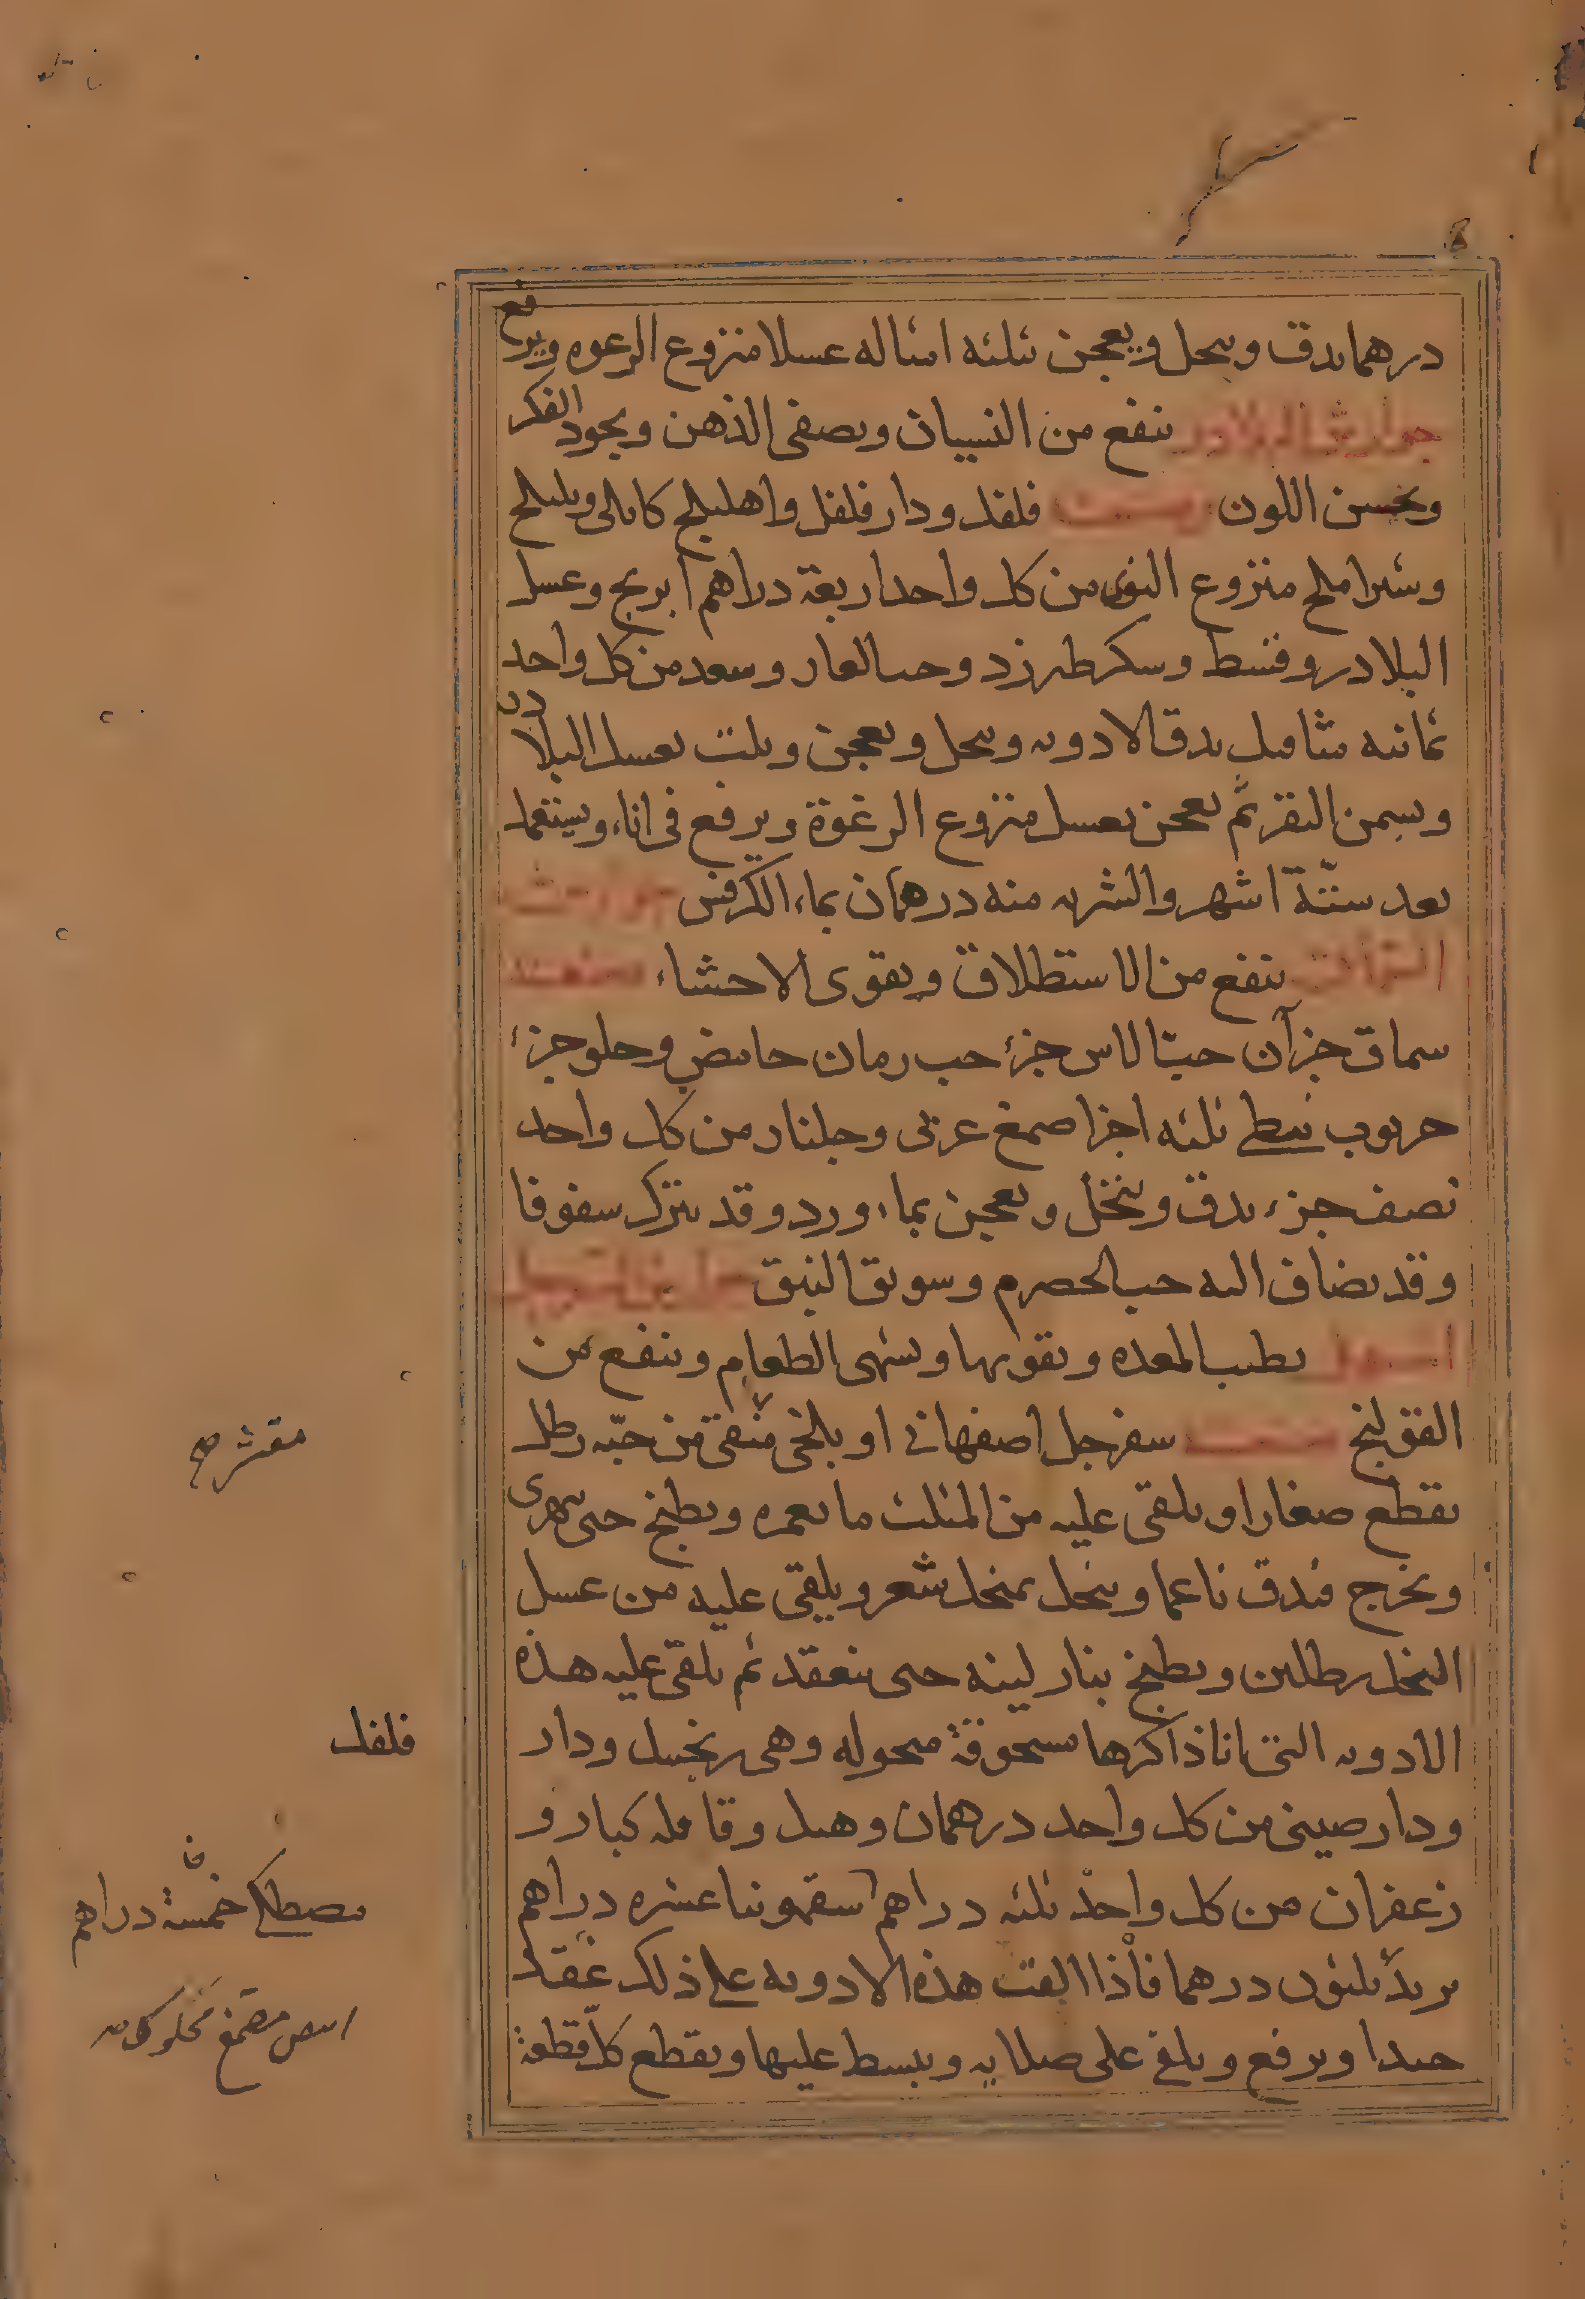 درهما يدق وينخل ويعجن بثلثة امثاله عسلا منزوع الرغوه ويرفع
جوارش البلادر ينفع من النسيان ويصفى الذهن ويجود الفكر
ويحسن اللون وصفته فلفل ودار فلفل واهليلج كابلى وبليلج
وشيراملج منزوع النوى من كل واحد اربعة دراهم ابرنج وعسل
البلادر وقسط وسكر طبرزد وحب الغار وسعد من كل واحد
ثمانيه مثاقيل يدق الادويه وينخل ويعجن ويلت بعسل البلادر
وبسمن البقر ثم يعجن بعسل منزوع الرغوة ويرفع فى اناء ويستعمل
بعد ستّة اشهر والشربه منه درهمان بماء الكرفس جوارش
السماق ينفع من الاستطلاق ويقوى الاحشاء وصفته
سماق جزآن حبّ الاس جزء حب رمان حامض وحلو جزء
خرنوب نبطى ثلثه اجزا صمغ عربى وجلنار من كل واحد
نصف جزء يدق وينخل ويعجن بماء ورد وقد يترك سفوفا
وقد يضاف اليه حب الحصرم وسويق النبق جوارش السفرجل
المسهل يطيب المعده ويقويها ويشهى الطعام وينفع من
القولنج صفته سفرجل اصفهانى او بلخى منقى من حبّه رطل
يقطع صغارا ويلقى عليه من المثلث ما يغمره ويطبخ حتى يتهرى
ويخرج فيدق ناعما وينخل بمنخل شعر ويلقى عليه من عسل
النحل رطلين ويطبخ بنار لينه حتى ينعقد ثم يلقى عليه هذه
الادويه التى انا ذاكرها مسحوقة منخوله وهى زنجبيل ودار
ودار صينى من كل واحد درهمان وهيل وقاقله كبار و
زعفران من كل واحد ثلثه دراهم سقمونيا عشره دراهم
تربد ثلثون درهما فاذا القيت هذه الادويه على ذلك عقد
جيدا ويرفع ويلقى على صلايه ويبسط عليها ويقطع كل قطعة
مقشر صح
فلفل
مصطكى خمسة دراهم
ابيض مصمغ محكوك